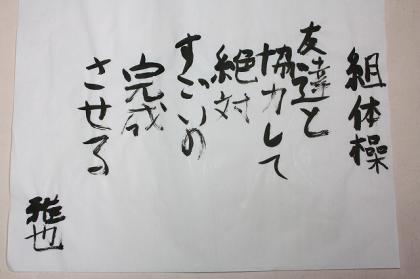 組体操
友達と
協力して
絶対
すごいの
完成
させる
雅也